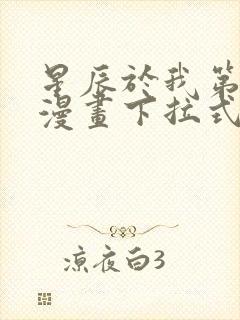 星辰於我第
漫畫下拉式
涼夜白3